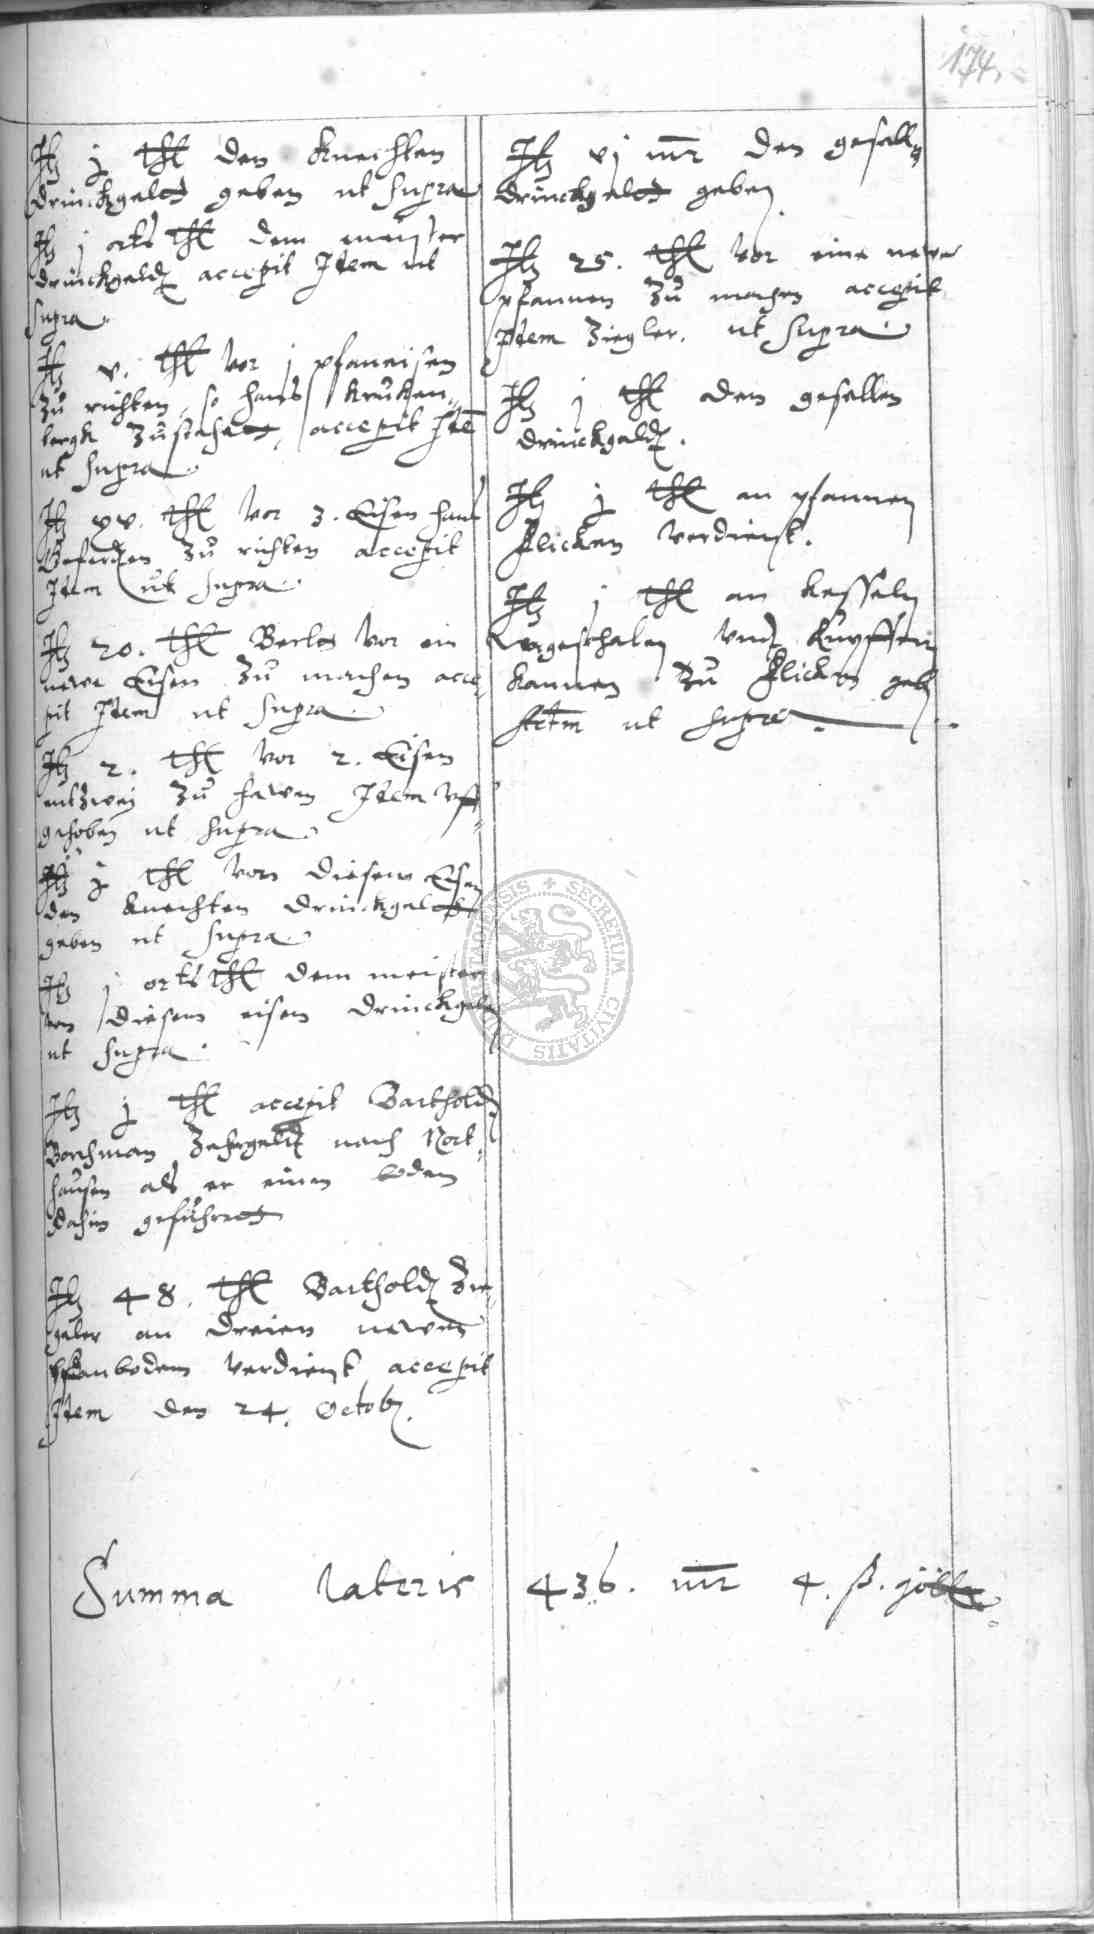 174.
Itz j thl den knechten
drinckgeldt geben ut supra
Itz j orts thl dem meister
drinckgeldt accepit Item ut
supra.
Itz v. thl vor j pfaneisen
zu richten, so hans kruken-
bergk zustehet, accepit Ite
ut supra.
Itz xv. thl vor 3. Eisen hans
zu richten accepit
Item ut supra.
Itz 20. thl vor ein
newe Eisen zu machen acce-
pit Item ut supra.
Itz 2. thl vor 2. Eisen
entzwei zu hawen Item uff-
gehoben ut supra.
Itz j thl von diesem Eisen
den knechten drinckgeldt
geben ut supra.
Itz j orts thl dem meister
von diesem eisen drinckgelt
ut supra.
Itz j thl accepit Bartholdt
Borchman Zehrgeldt nach Nort-
hausen als er einen boden
dahin gefuhret
Itz 48. thl Bartholdt Zie-
geler an dreien newen
pfanbodem verdient accepit
Item den 24. Octob.
Itz vj mr den gesell-
drinckgeldt geben
Itz 25. thl vor eine newe
pfannen zu machen accepit
Item Ziegler. ut supra.
Itz j thl den gesellen
drinckgeldt.
Itz j thl an pfannen
flicken verdienst.
Itz j thl an kesseln
wegeschalen undt
kannen zu flicken geb
ut supra.
Summa lateris 436. mr 4. ß.
DUDERSTADENSIS + SECRETUM CIVITATIS